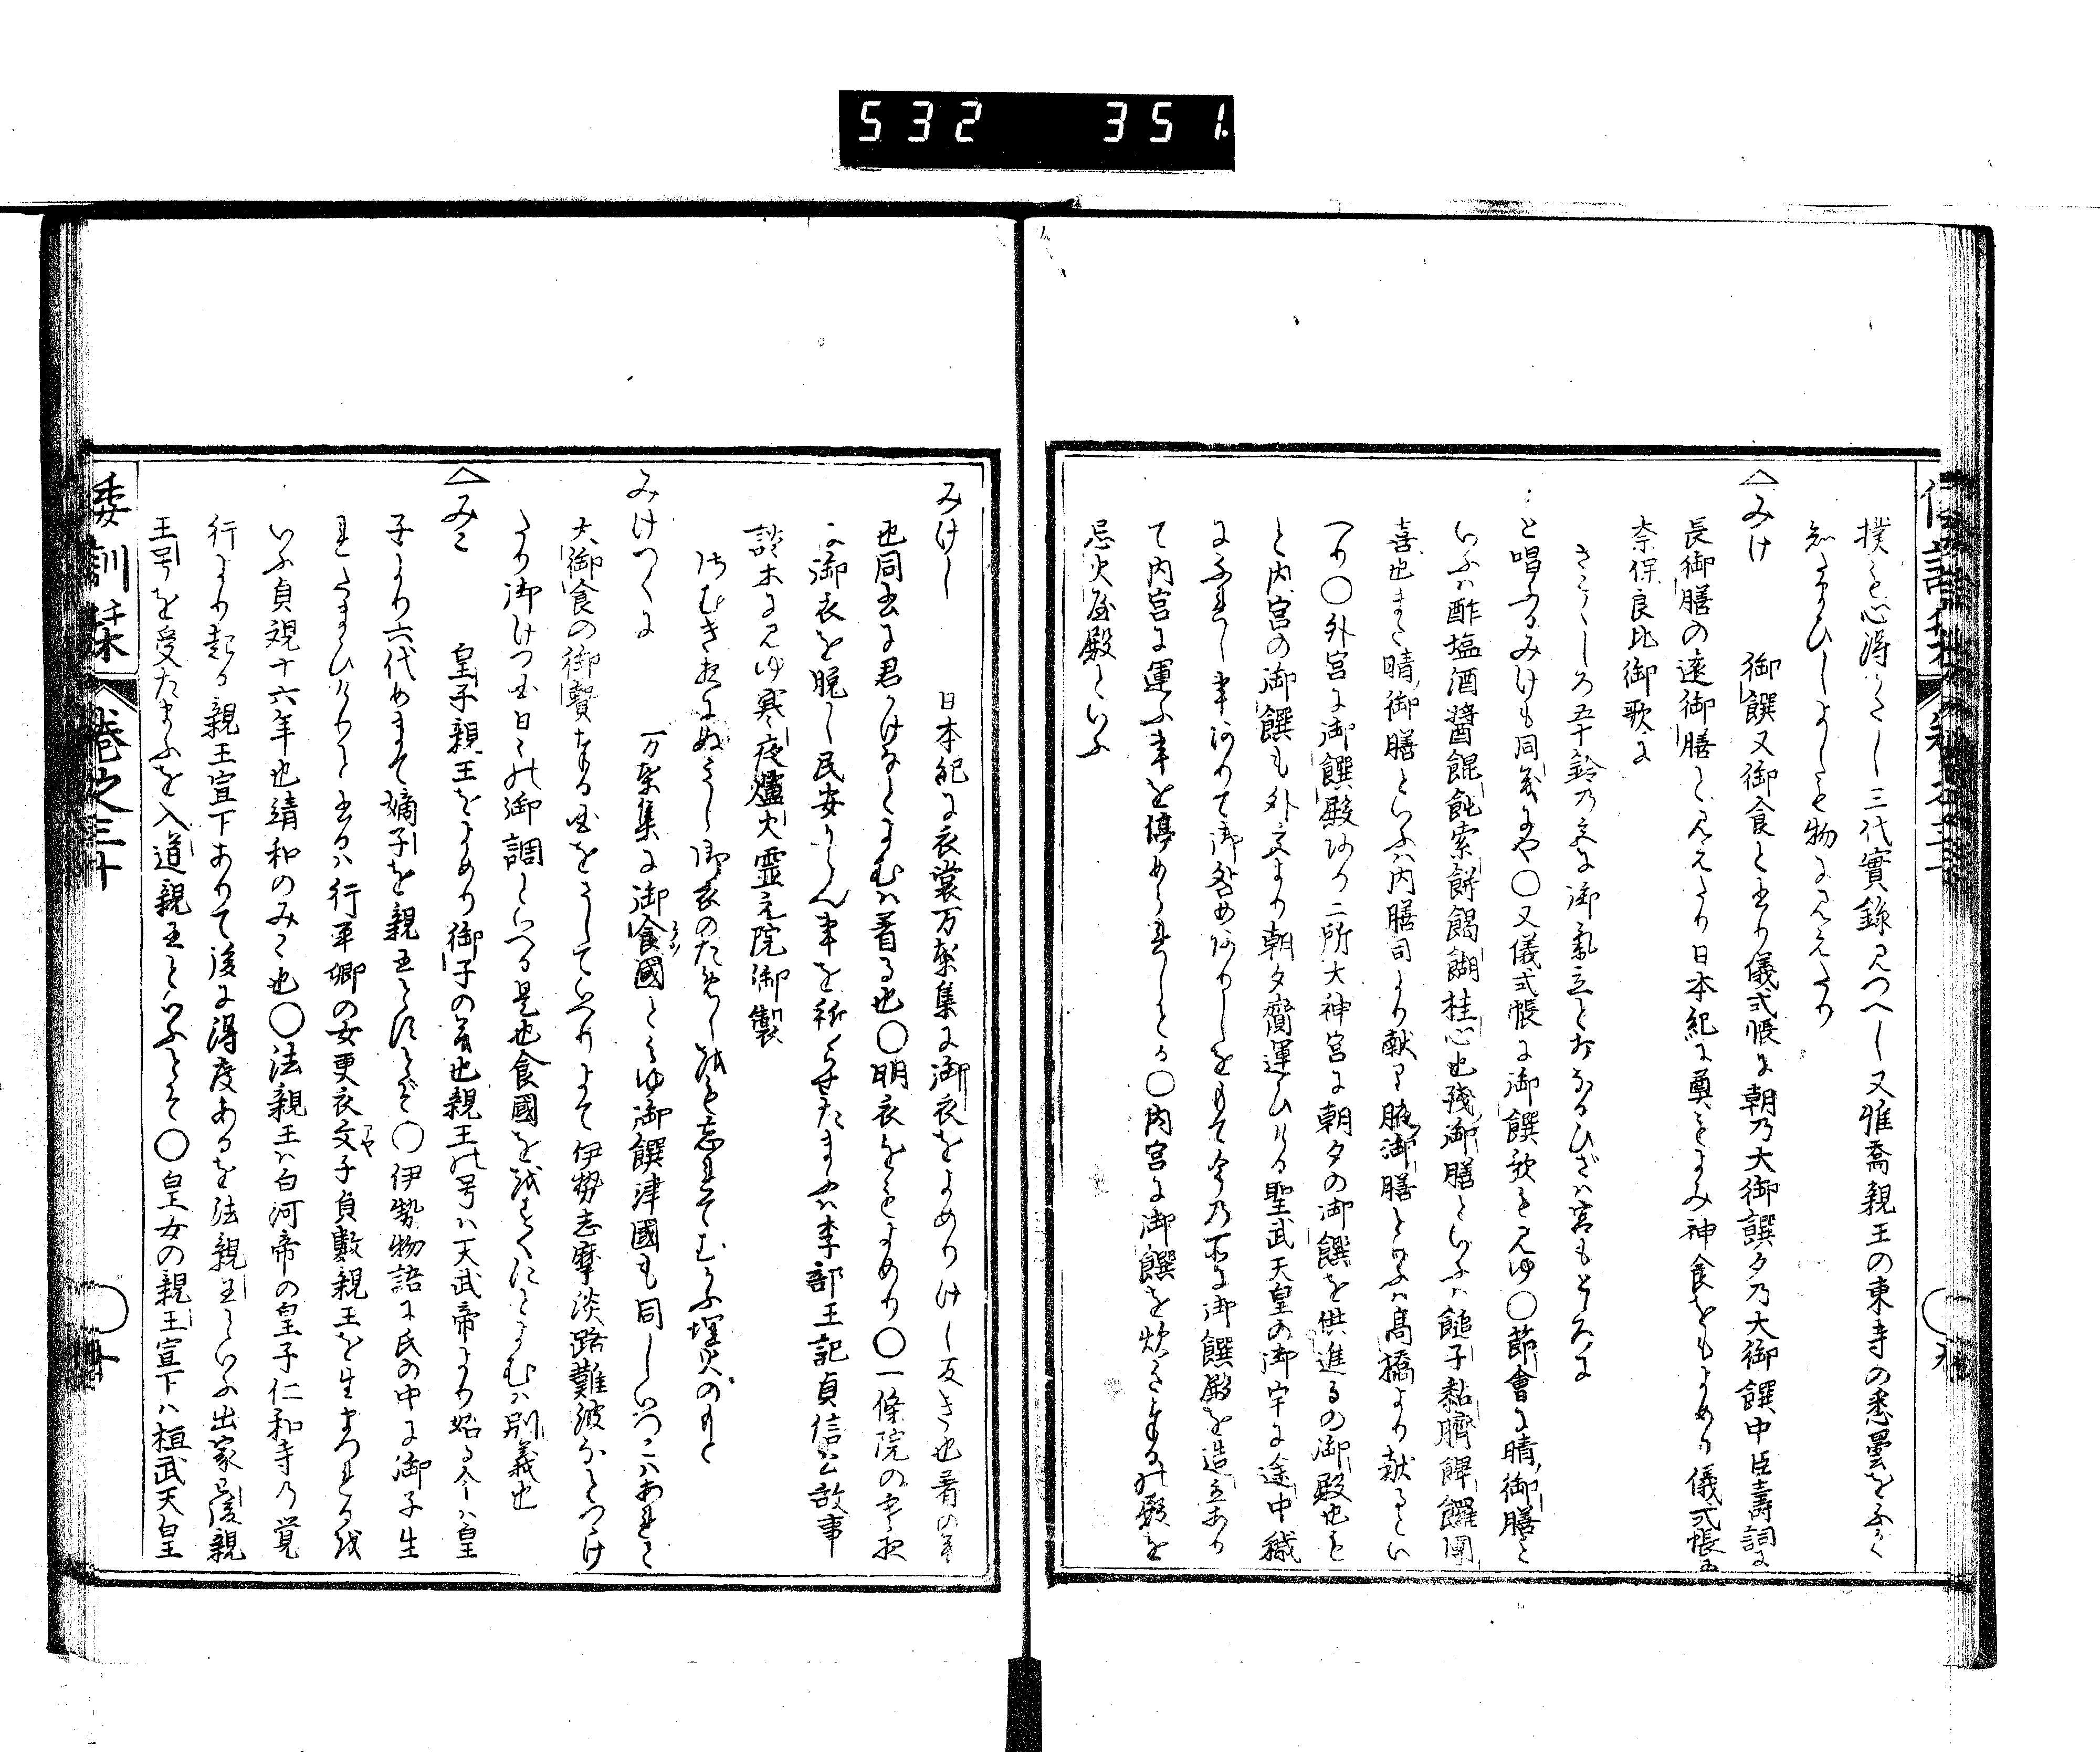 532 351
撲を心得へし三代實錄見つへし又雅喬親王の東寺の悉曇をふかく
知たまひしよしを物に見えたり
△みけ 御饌又御食と書り儀式帳に朝乃大御饌夕乃大御饌中臣壽詞に
長御膳の遠御膳と見えたり日本紀に奠をよみ神食をもよめり儀式帳
奈保良比御歌に
さこくしろ五十鈴乃宮に御氣立とおなるひざハ宮もとろに
と唱ふるみけも同義にや〇又儀式帳に御饌歌を見ゆ〇節會に晴御膳と
いふハ酢塩酒醬餛飩索餅餲餬桂心也殘御膳といふハ䭔子黏臍饆饠團
喜也また晴御膳といふハ内膳司より献り腋御膳といふハ高橋より献るとい
へり〇外宮に御饌殿あり二所大神宮に朝夕の御饌を供進るの御殿也も
と内宮の御饌も外宮より朝夕齎運ひける聖武天皇の御宇に途中穢
にふれし事ありて御咎めありしをもて今乃所に御饌殿を造立あり
て内宮に運ふ事を停められしとそ〇内宮に御饌を炊きまるの殿を
忌火屋殿といふ
みけし 日本紀に衣裳万葉集に御衣をよめりけし反き也着の義
也同書に君かけなとよむハ着る也〇明衣をもよめり〇一條院の寒夜
に御衣を脱し民安からん事を祈らせたまふハ李部王記貞信公故事
談木に見ゆ寒夜爐火靈元院御製
さむき夜にぬきし御衣のためしをも忘れてむかふ埋火のもと
みけつくに 万葉集に御食國とみゆ御饌津國も同しいつこハあれと
大御食の御贄たてまる國をさしていへりよて伊勢志摩淡路難波なとつゝけ
たり御けつ國日々の御調といへる是也食國ををすくにとよむハ別義也
△みこ 皇子親王をよめり御子の義也親王の号ハ天武帝より始る今ハ皇
子より六代めまて嫡子を親王とすとぞ〇伊勢物語に氏の中に御子生
れたまひけりと書るハ行平卿の女更衣文子貞數親王を生まつれるを
いふ貞觀十六年也靖和のみこ也〇法親王ハ白河帝の皇子仁和寺乃覚
行より起る親王宣下ありて後に得度あるを法親王といふ出家後親
王号を受たまふを入道親王といふとそ〇皇女の親王宣下ハ桓武天皇
倭訓栞 卷之三十